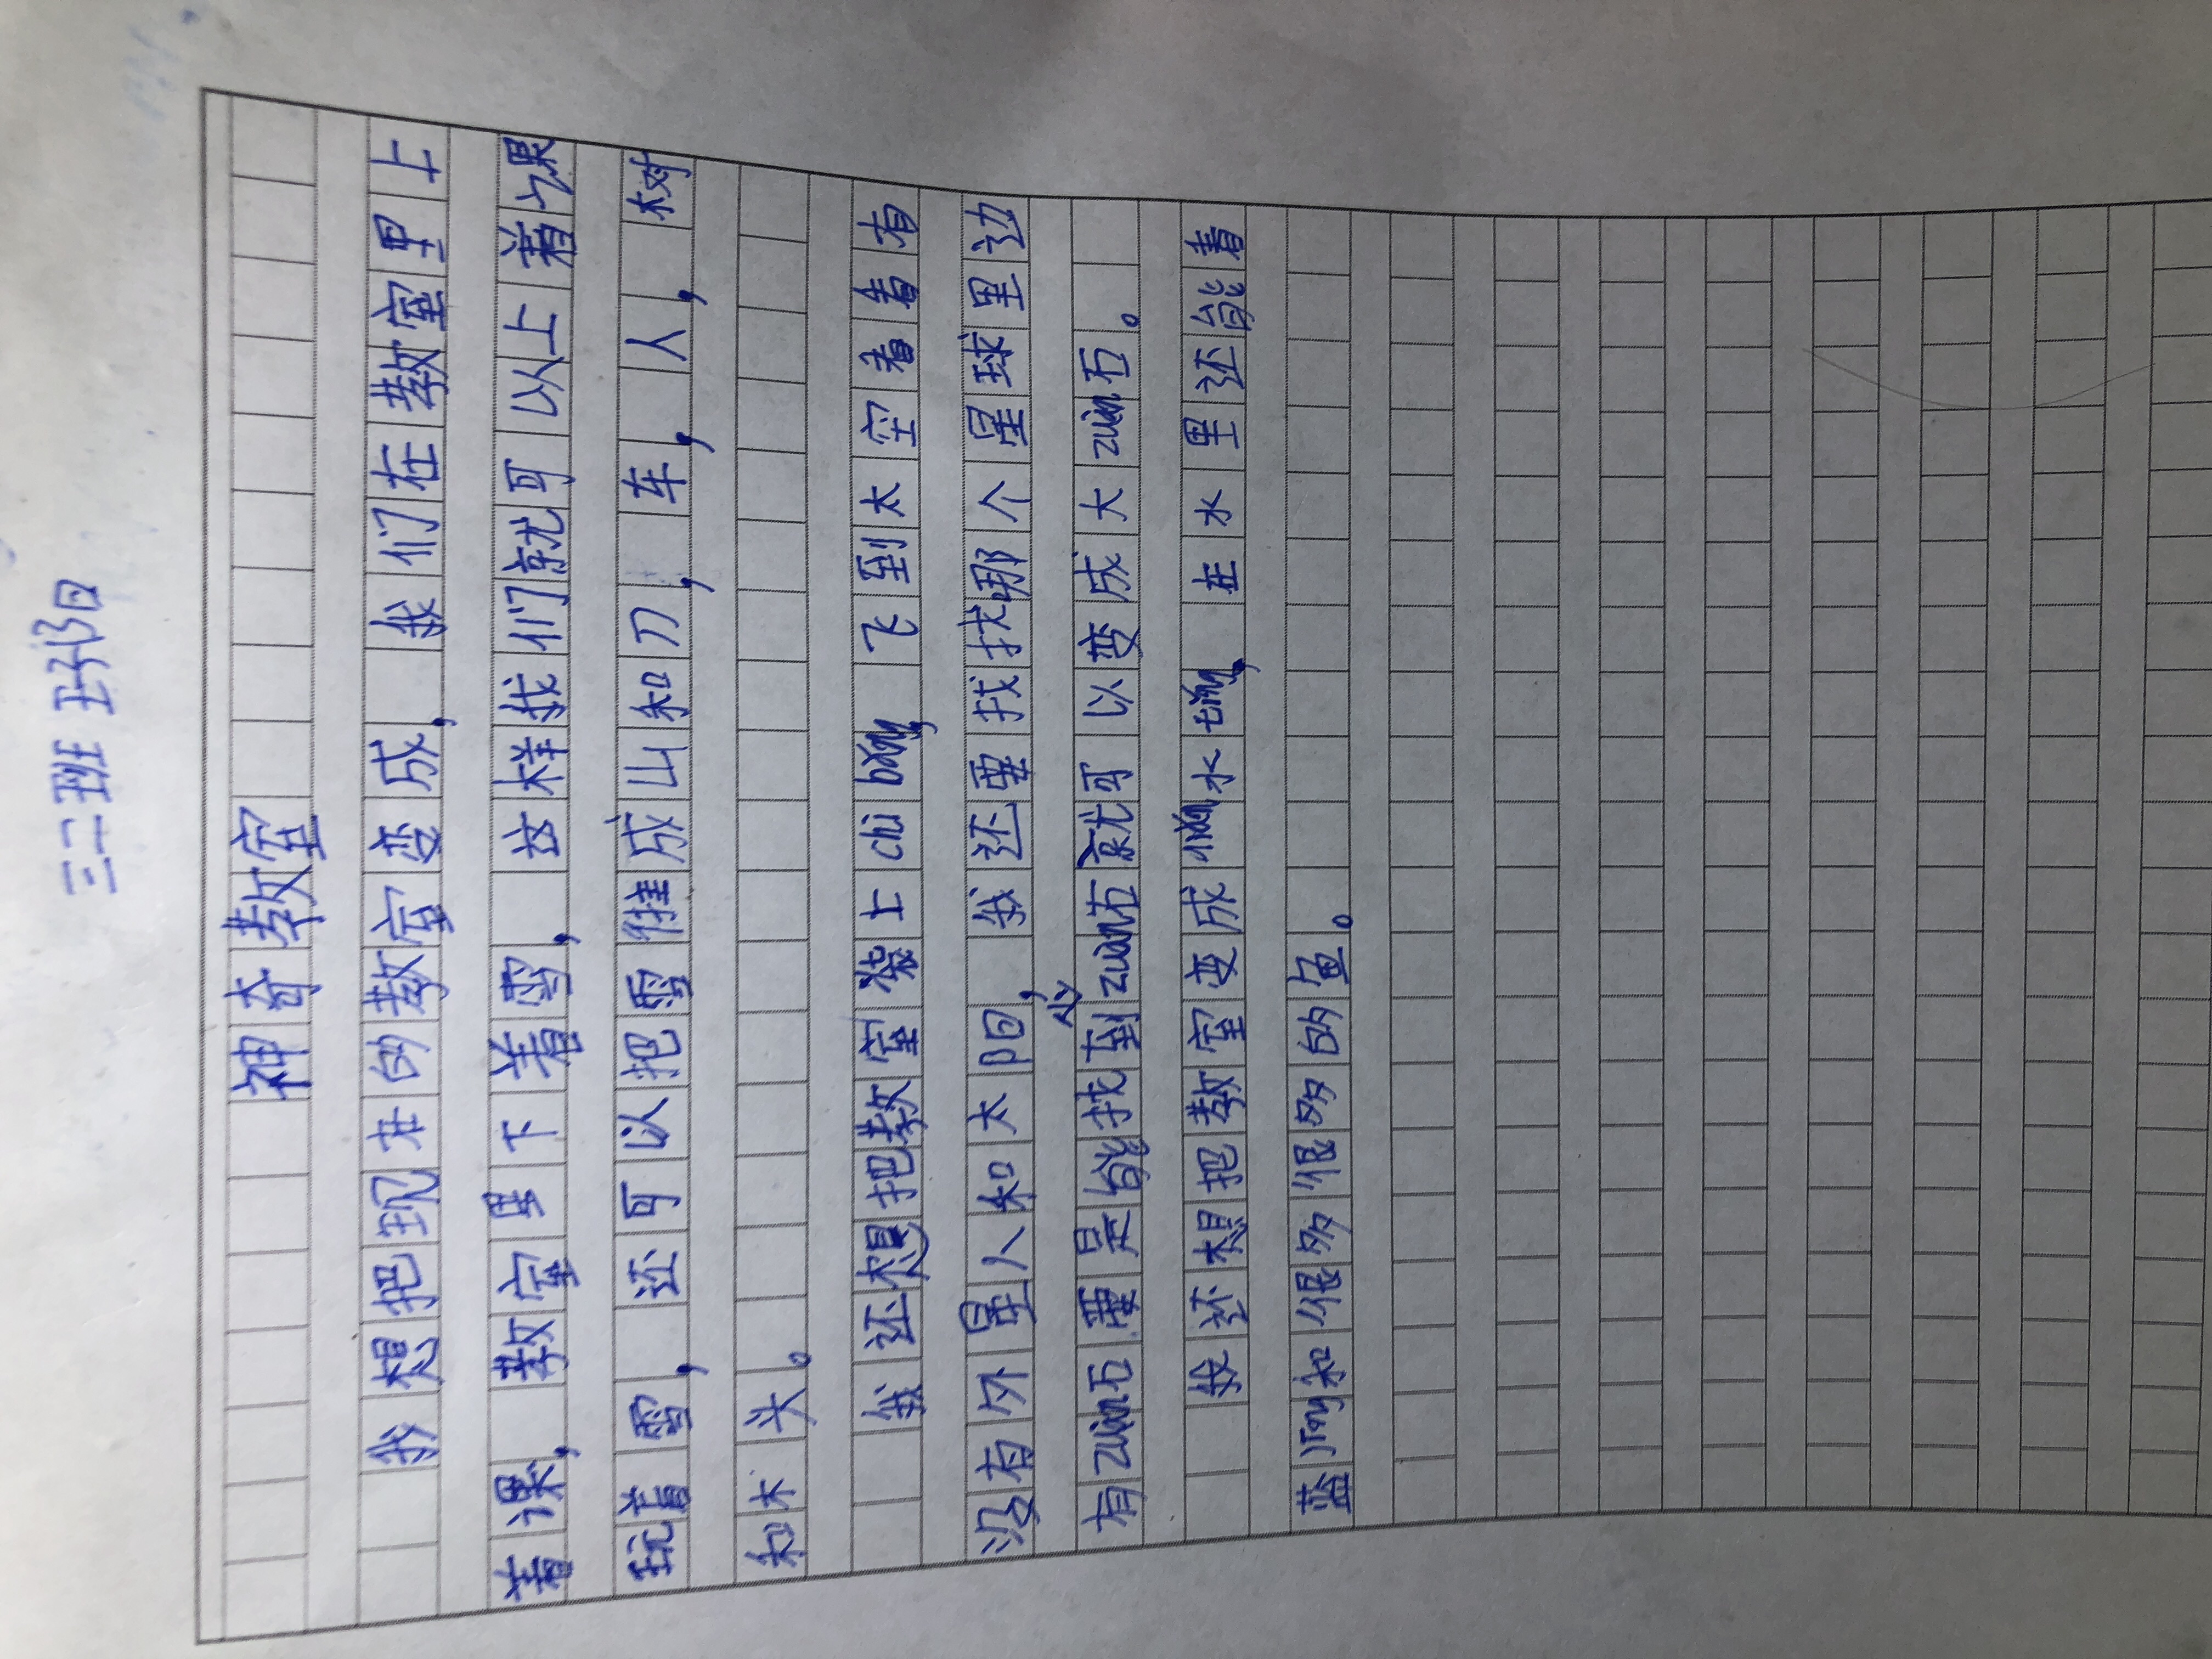 三二班 王
神奇教室
我想把现在的教室变成，我们在教室里上
着课，教室里下着雪，这样我们就可以上着课
玩着雪，还可以把雪堆成山和刀，车，人，树
和木头。
我还想把教室装上chi bǎng，飞到太空看看有
没有外星人和太阳，我还要找找哪个星球里边
有zuàn石要是能找到zuàn石就可以变成大zuàn石。
我还想把教室变成 水 tǐng，在水里还能看
蓝 和很多很多的鱼。